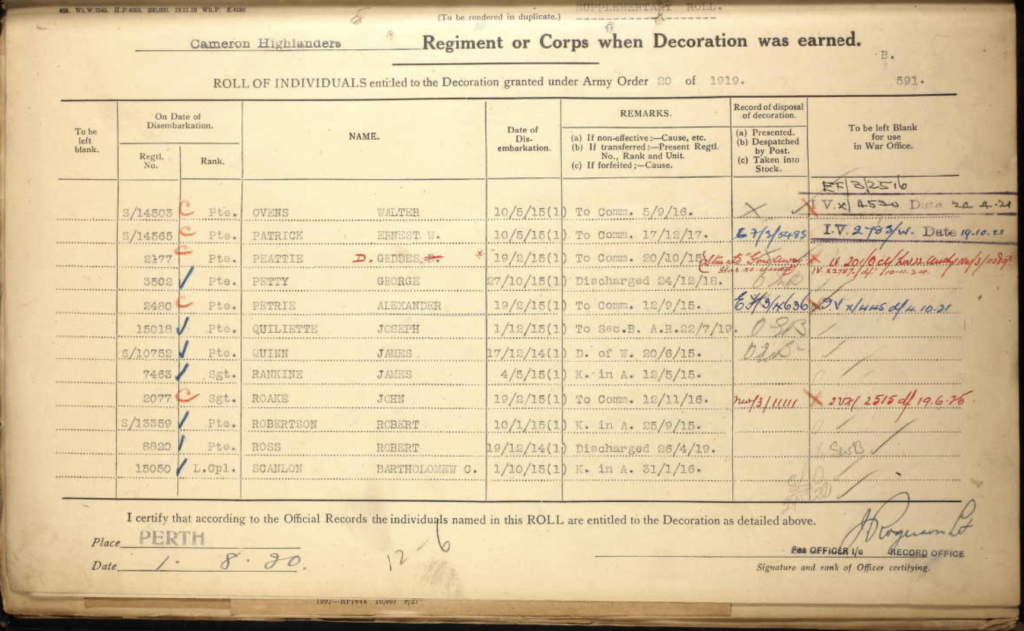 SUPPLEMENTARY ROLL.
(To be rendered in duplicate.)
Cameron Highlanders Regiment or Corps when Decoration was earned.
B.
ROLL OF INDIVIDUALS entitled to the Decoration granted under Army Order 20 of 1919. 591.
To be left blank. On Date of Disembarkation. NAME. Date of Disembarkation. REMARKS. Record of disposal of decoration. To be left Blank for use in War Office.
Regtl. No. Rank. (a) If non-effective:—Cause, etc. (b) If transferred:—Present Regtl. No., Rank and Unit. (c) If forfeited;—Cause. (a) Presented. (b) Despatched by Post. (c) Taken into Stock.
S/14503 C Pte. OVENS WALTER 10/5/15(1) To Comm. 5/9/16. IV.x/4530 Date
S/14565 C Pte. PATRICK ERNEST W. 10/5/15(1) To Comm. 17/12/17. I.V. Date 19.10.21
2177 C Pte. PEATTIE D. GEDDES * 19/2/15(1) To Comm. 20/10/15
3502 Pte. PETTY GEORGE 27/10/15(1) Discharged 24/12/18.
2480 C Pte. PETRIE ALEXANDER 19/2/15(1) To Comm. 12/9/15. 4.10.21
15018 Pte. QUILIETTE JOSEPH 1/12/15(1) To Sec.B. A.R.22/7/19.
S/10752 Pte. QUINN JAMES 17/12/14(1) D. of W. 20/6/15.
7463 Sgt. RANKINE JAMES 4/5/15(1) K. in A. 12/5/15.
2077 C Sgt. ROAKE JOHN 19/2/15(1) To Comm. 12/11/16. X 2515 19.6.
S/13359 Pte. ROBERTSON ROBERT 10/1/15(1) K. in A. 25/9/15.
8820 Pte. ROSS ROBERT 19/12/14(1) Discharged 26/4/19. SWB
15050 L.Cpl. SCANLON BARTHOLOMEW C. 1/10/15(1) K. in A. 31/1/16.
I certify that according to the Official Records the individuals named in this ROLL are entitled to the Decoration as detailed above.
Place PERTH
Date 1. 8. 20. 12-6
OFFICER I/c RECORD OFFICE
Signature and rank of Officer certifying.